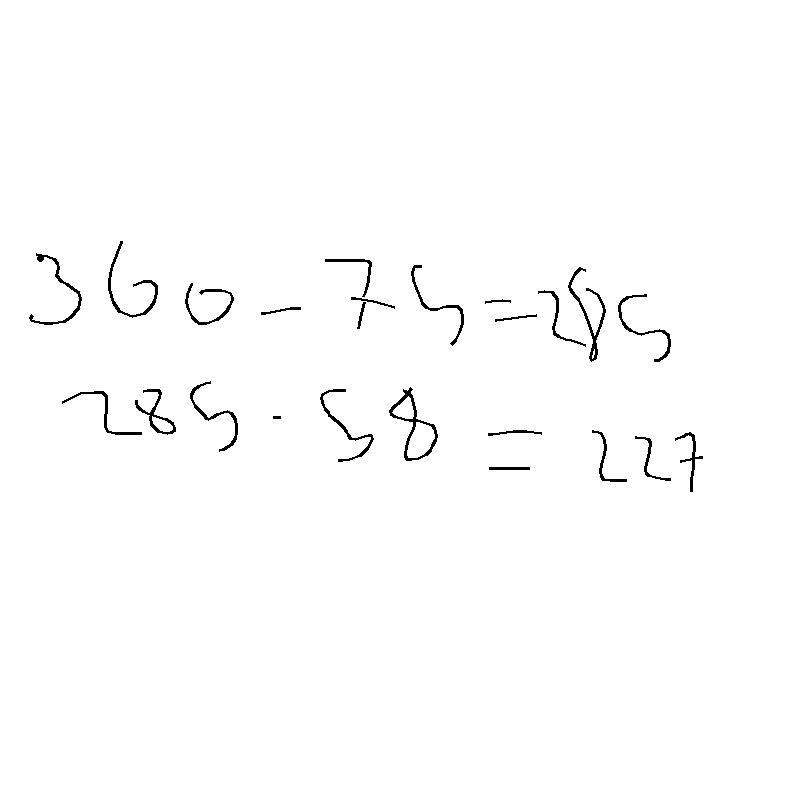 360 - 75 = 285
285 - 58 = 227